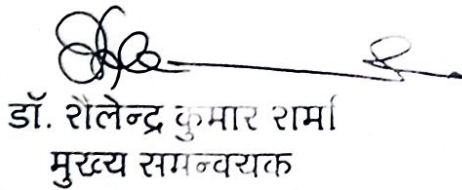 डॉ. शैलेन्द्र कुमार शर्मा
मुख्य समन्वयक